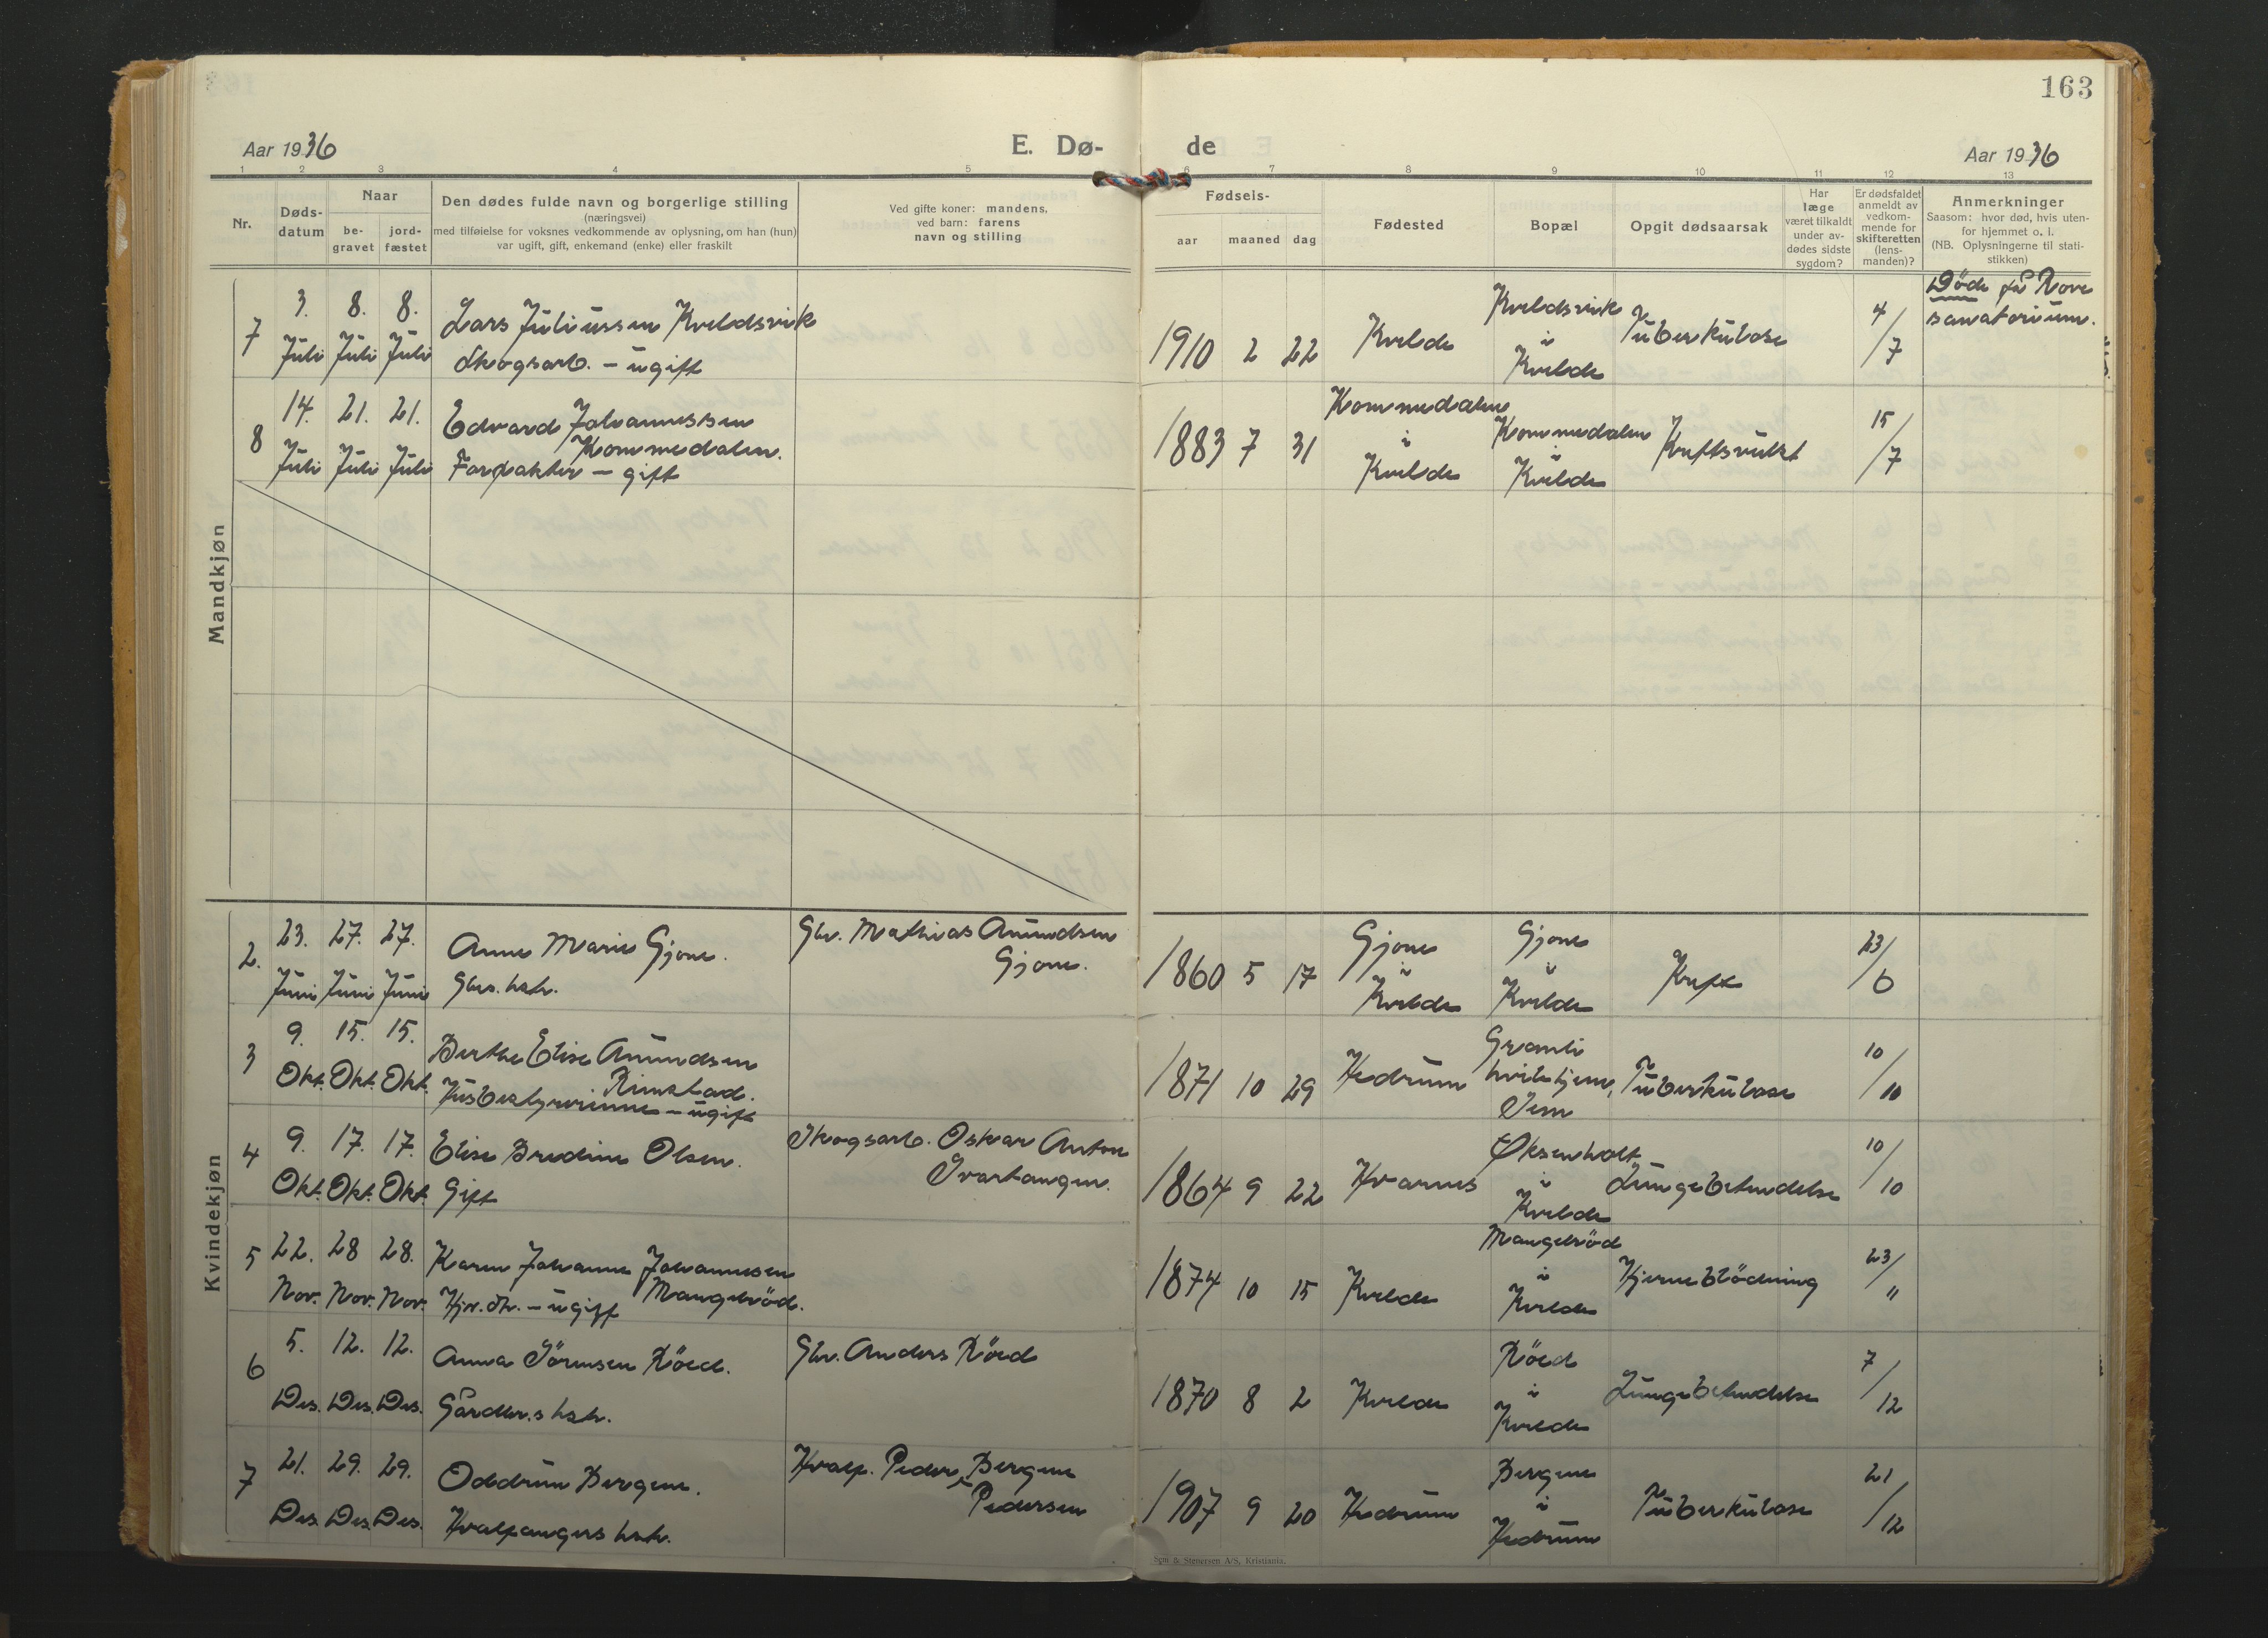 163
Aar 1936
E. Dø-
de
Aar 1936
1 2 3 4 5 6 7 8 9 10 11 12 13
Nr.
Døds-
datum
Naar
be-
gravet
jord-
fæstet
Den dødes fulde navn og borgerlige stilling
(næringsvei)
med tilføielse for voksnes vedkommende av oplysning, om han (hun)
var ugift, gift, enkemand (enke) eller fraskilt
Ved gifte koner: mandens,
ved barn: farens
navn og stilling
Fødsels-
aar maaned dag
Fødested
Bopæl
Opgit dødsaarsak
Har
læge
været tilkaldt
under av-
dødes sidste
sygdom?
Er dødsfaldet
anmeldt av
vedkom-
mende for
skifteretten
(lens-
manden)?
Anmerkninger
Saasom: hvor død, hvis uten-
for hjemmet o. l.
(NB. Oplysningerne til stati-
stikken)
Mandkjøn
7
3. 8. 8.
Juli Juli Juli
Lars Juliussen Kveldsvik
Skogsarb. – ugift
1910 2 22
Kvelde
Kveldsvik
i
Kvelde
Tuberkulose
4/7
Døde på Rove
sanatorium.
8
14. 21. 21.
Juli Juli Juli
Edvard Johannessen
Kommedalen.
Forpakter – gift
1883 7 31
Kommedalen
i
Kvelde
Kommedalen
i
Kvelde
Kreftsvulst
15/7
Kvindekjøn
2.
23. 27. 27.
Juni Juni Juni
Anne Marie Gjone.
Gbr. hstr.
Gbr. Mathias Amundsen
Gjone.
1860 5 17
Gjone
i
Kvelde
Gjone
i
Kvelde
Kreft
23/6
3
9. 15. 15.
Okt. Okt. Okt.
Berthe Elise Amundsen
Rimstad.
Husbestyrerinne – ugift
1871 10 29
Hedrum
Gramli
hvilehjem,
Tuberkulose
10/10
4
9. 17. 17.
Okt. Okt. Okt.
Elise Bredine Olsen.
Gift
Skogsarb. Oskar Anton
Svartangen.
1864 9 22
Hvarnes
Øksenholt
i
Kvelde
Lungebetendelse
10/10
5
22. 28 28.
Nov. Nov. Nov.
Karen Johanne Johannesen
Mangelrød.
Hjv. dtr. – ugift
1874 10 15
Kvelde
Mangelrød
i
Kvelde
Hjerneblødning
23/"
6
5. 12. 12.
Des. Des. Des.
Anna Sørensen Røed.
Gårdbr.s hstr.
Gbr. Anders Røed
1870 8 2
Kvelde
Røed
i
Kvelde
Lungebetendelse
7/12
7
21. 29. 29.
Des. Des. Des.
Oddrun Bergene.
Hvalfangers hstr.
Hvalf. Peder Bergene
Pedersen
1907 9 20
Hedrum
Bergene
i
Hedrum
Tuberkulose
21/12
Stenersen A/S, Kristiania.